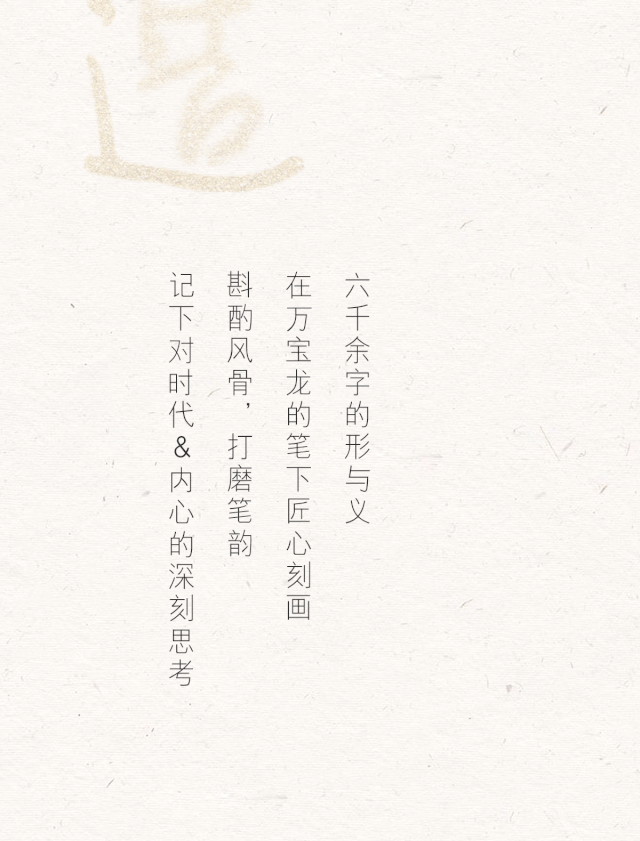 六千余字的形与义
在万宝龙的笔下匠心刻画
斟酌风骨，打磨笔韵
记下对时代&内心的深刻思考